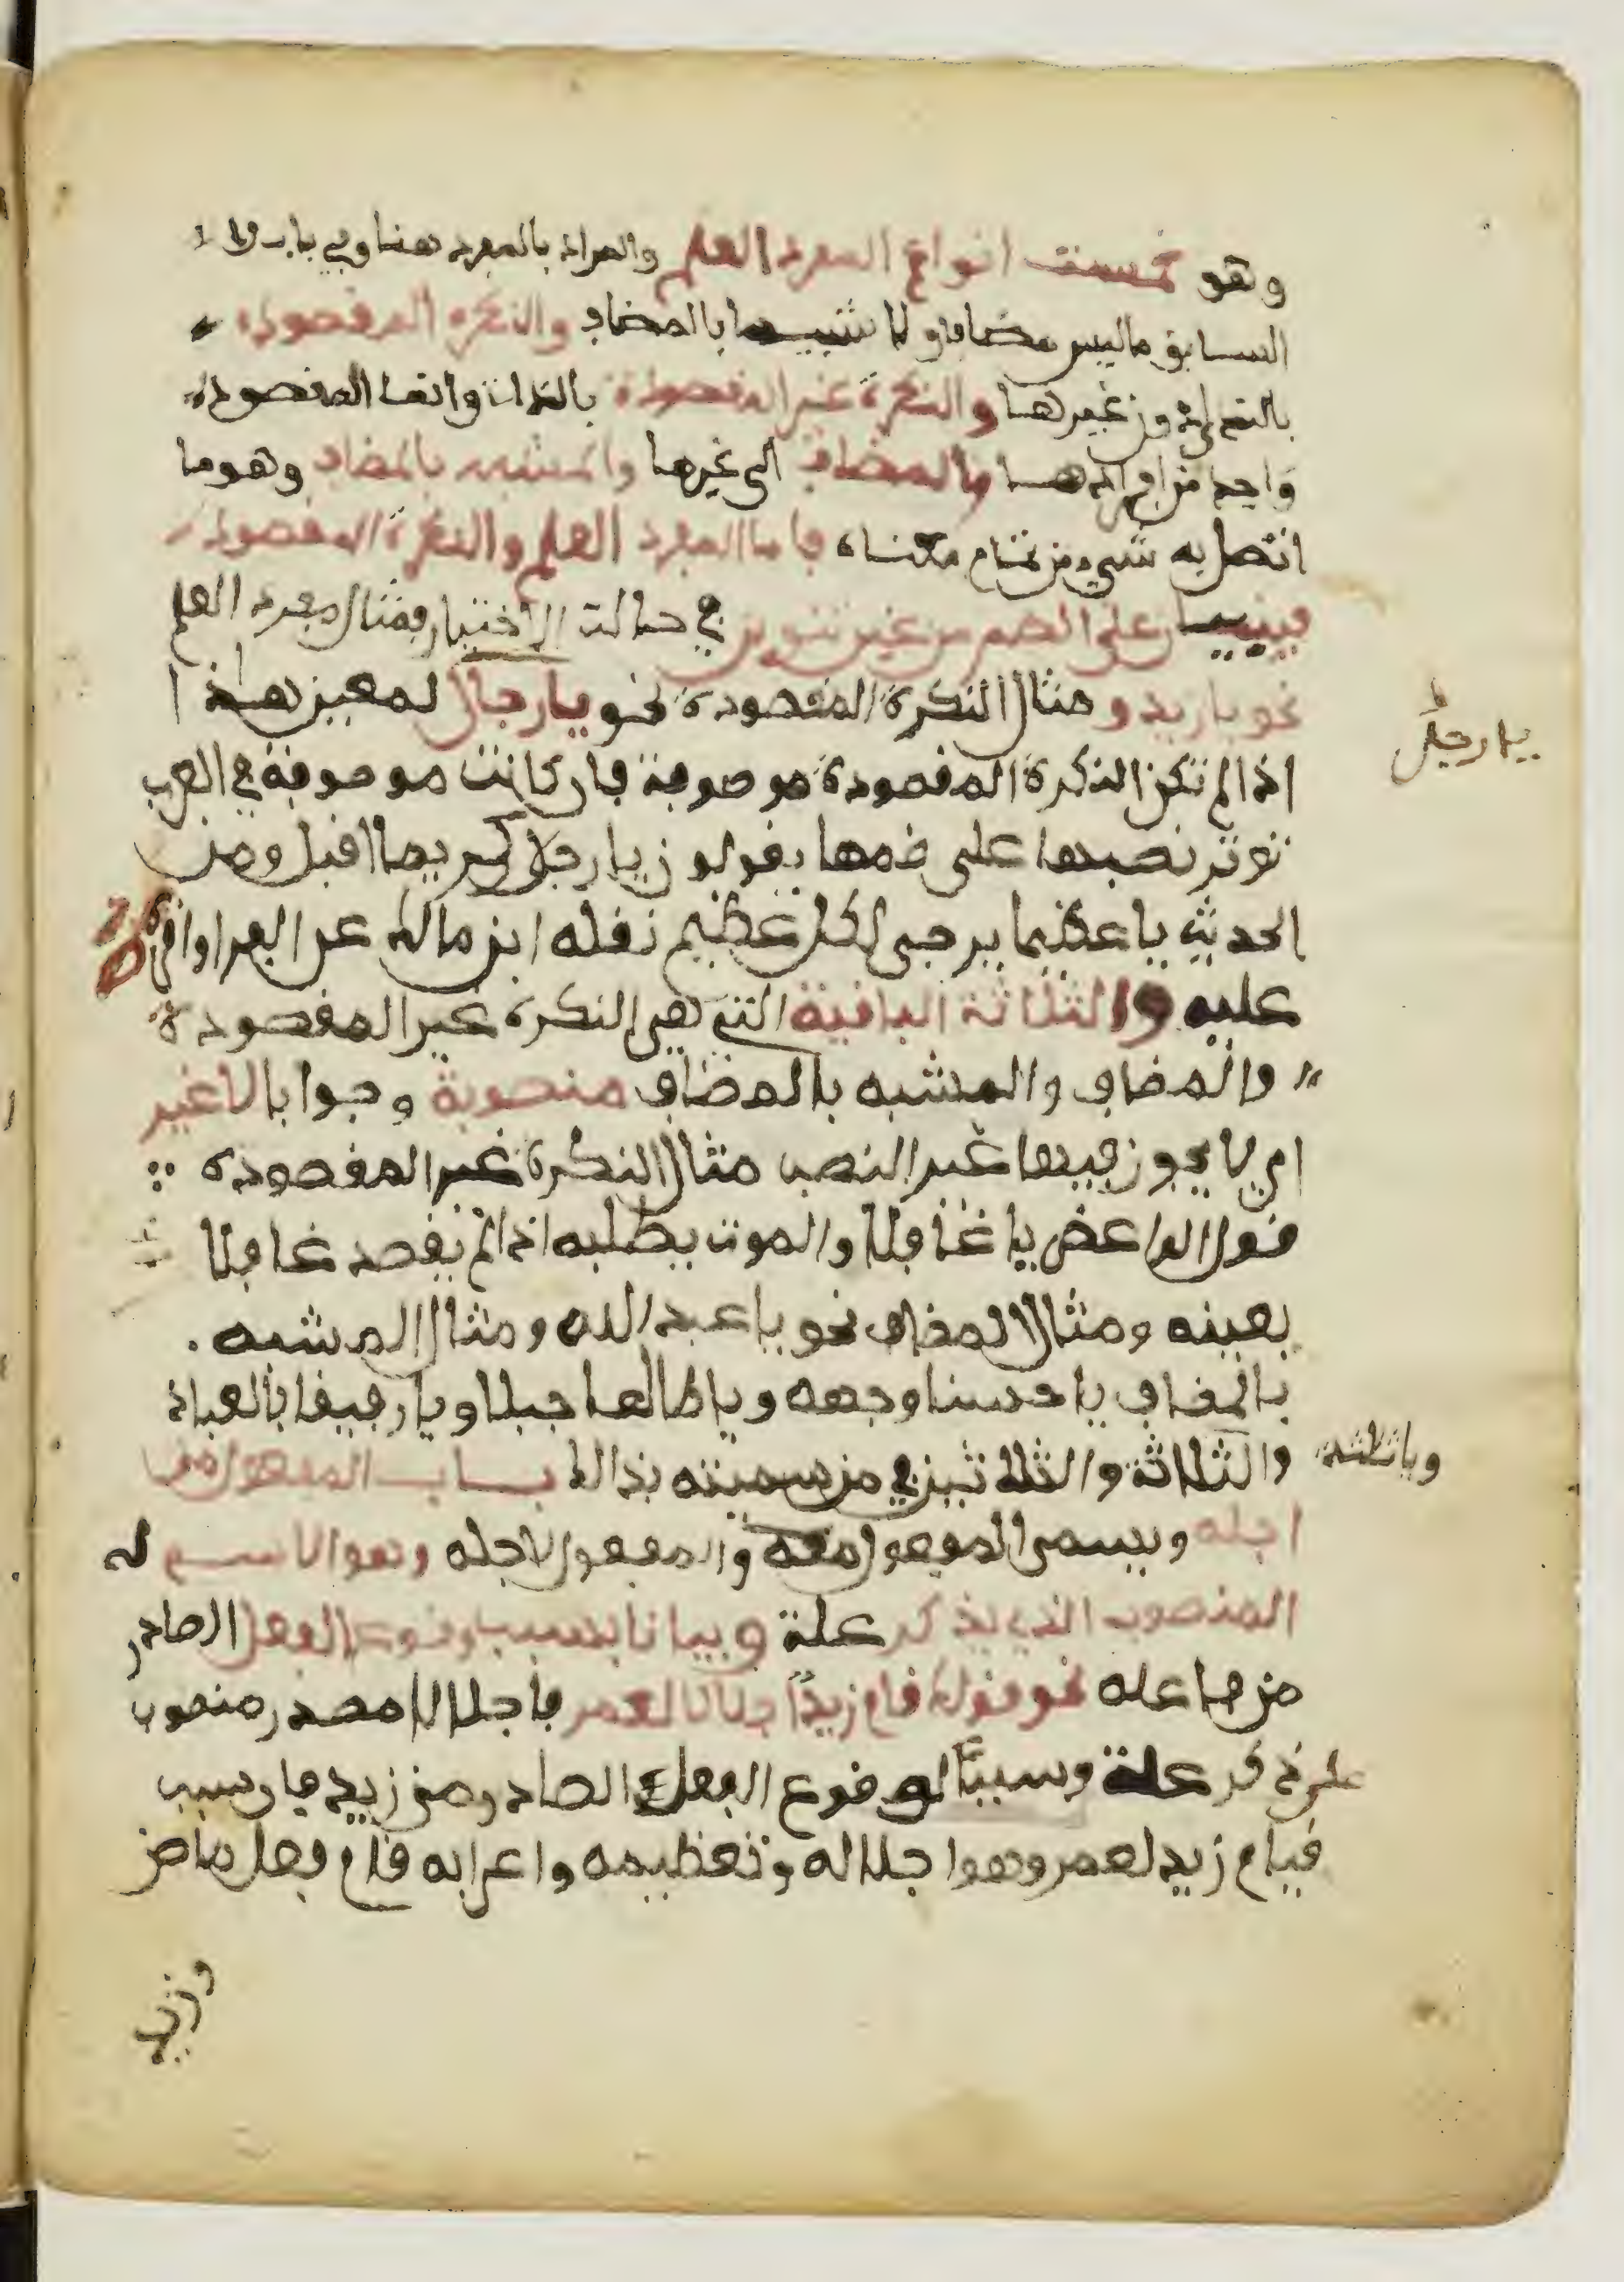 وهو خمسة انواع المفرد العلم والمراد بالمفرد هنا وفي باب لا
السابق ما ليس مضافا ولا شبيها بالمضاف والنكرة المقصودة
بالنداء دون غيرها والنكرة غير المقصودة بالذات وانما المقصودة
واحد من افرادها والمضاف الى غيرها والمشبه بالمضاف وهو ما
اتصل به شيء من تمام معناه فاما المفرد العلم والنكرة المقصودة
فيبنيان على الضم من غير تنوين في حالة الاختيار فمثال مفرد العلم
نحو يا زيد و مثال النكرة المقصودة نحو يا رجال لمعين هذا
يا رجل
اذا لم تكن النكرة المقصودة موصوفة فان كانت موصوفة في العرب
توتر نصبها على ضمها يقولون يا رجلا كريما اقبل ومن
الحديث يا عظيما يرجى لكل عظيم نقله ابن مالك عن الفرا واقره
عليه والثلاثة الباقية التي هي النكرة غير المقصودة
والمضاف والمشبه بالمضاف منصوبة وجوبا لا غير
اي لا يجوز فيها غير النصب مثال النكرة غير المقصودة
قول الواعض يا غافلا والموت يطلبه اذا لم يقصد غافلا
بعينه ومثال المضاف نحو يا عبد الله ومثال المشبه
بالمضاف يا حسنا وجهه ويا طالعا جبلا ويا رفيقا بالعباد
ويا ثلاثة
والثلاثة والثلاثين في من سميته بذالك باب المفعول من
اجله ويسمى المفعول معه والمفعول لاجله وهو الاسم له
المنصوب الذي يذكر علة وبيانا بسبب وقوع الفعل الصادر
من فاعله نحو قولك قام زيدا جلالا لعمر فاجلالا مصدر منصوب
علة وسببا لوقوع الفعل الصادر من زيد فان سبب
قيام زيد لعمر وهو اجلاله وتعظيمه واعرابه قام فعل ماض
وزيد